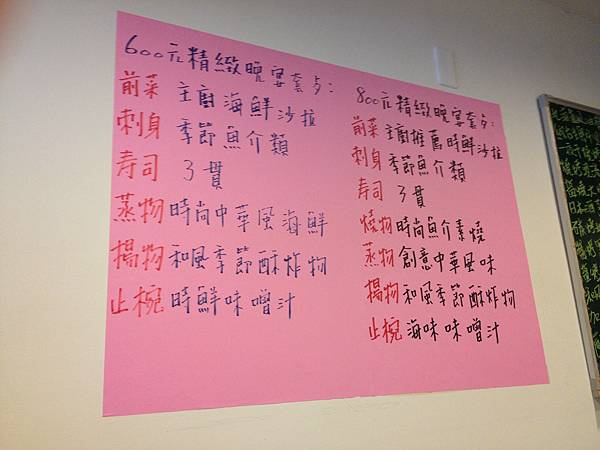 600元精緻晚宴套夕:
前菜 主廚海鮮沙拉
刺身 季節魚介類
寿司 3貫
蒸物 時尚中華風海鮮
揚物 和風季節酥炸物
止椀 時鮮味噌汁
800元精緻晚宴套夕:
前菜 主廚推薦時鮮沙拉
刺身 季節魚介類
寿司 3貫
燒物 時尚魚介素燒
蒸物 創意中華風味
揚物 和風季節酥炸物
止椀 海味味噌汁